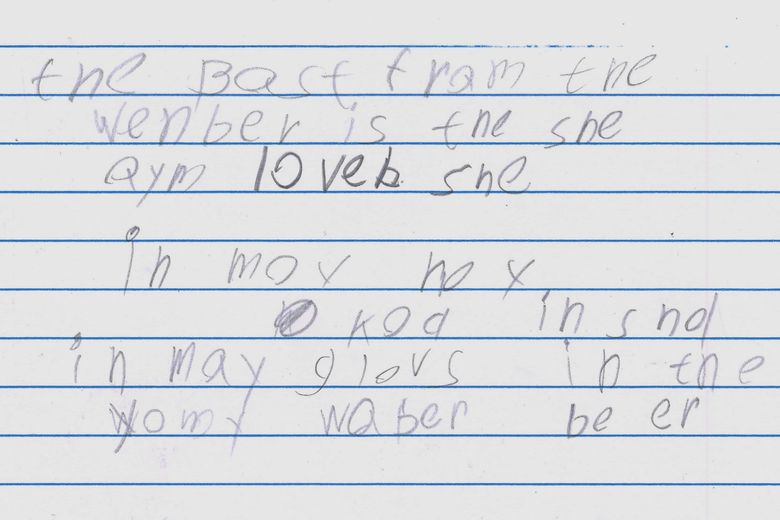 the Bast fram the
wenber is the she
aym loveb she
in mox hox
kod in snd
in may glovs in the
womy waber be er